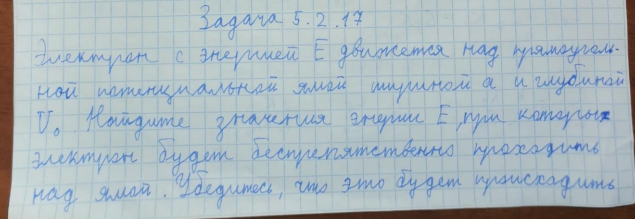 Задача 5.2.17
Электрон с энергией E движется над прямоуголь-
ной потенциальной ямой шириной a и глубиной
U₀. Найдите значения энергии E, при которых
электрон будет беспрепятственно проходить
над ямой. Убедитесь, что это будет происходить